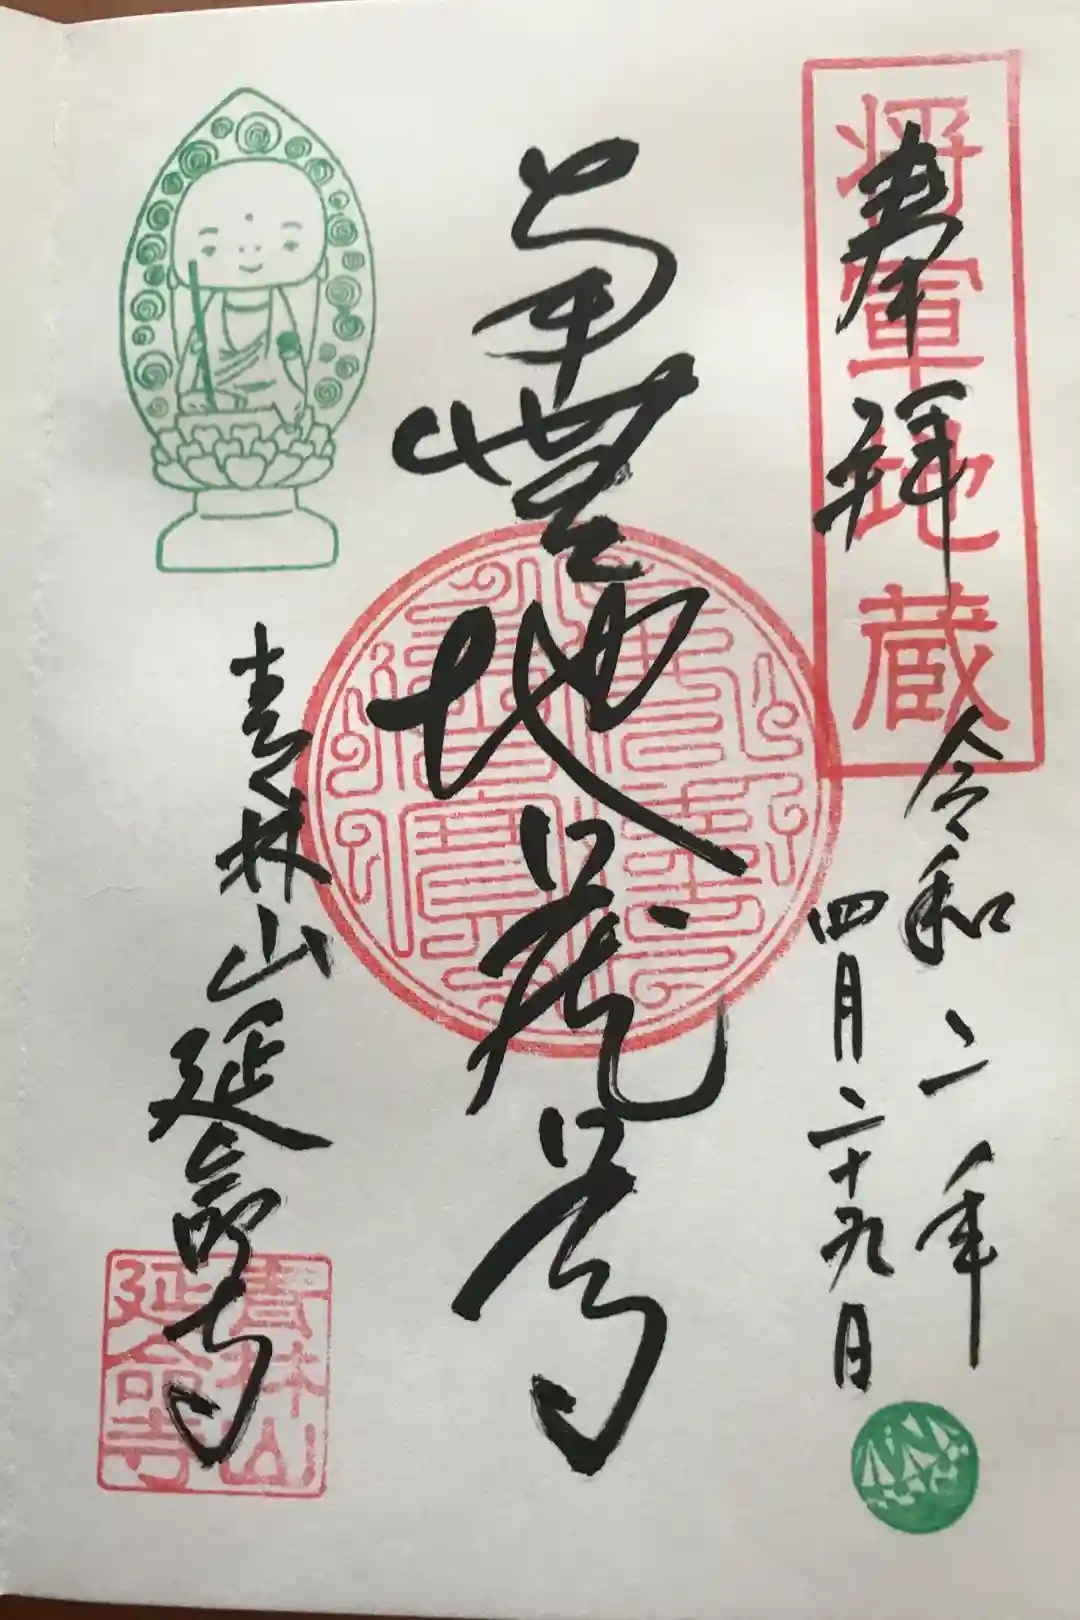 将軍地蔵
奉拝
令和二年
四月二十九日
南無地蔵尊
青林山延命寺
青林山
延命寺